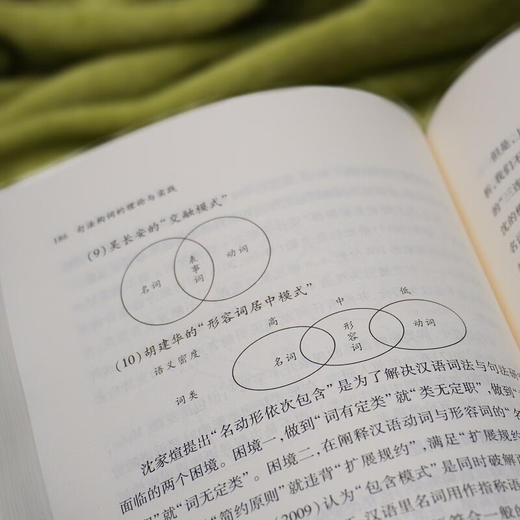 186 句法构词的理论与实践
(9)吴长安的“交融模式”
名词 表事词 动词
(10)胡建华的“形容词居中模式”
语义密度 高 中 低
词类 名词 形容词 动词
沈家煊提出“名动形依次包含”是为了解决汉语词法与句法研
面临的两个困境。困境一,做到“词有定类”就“类无定职”,做到“
”就“词无定类”。困境二,在阐释汉语动词与形容词的“名
“简约原则”就违背“扩展规约”,满足“扩展规
(2009)认为“包含模式”是同时破解
汉语里名词用作指称语
符合一般的
但是,
析,我们不
的“三
沈的
名